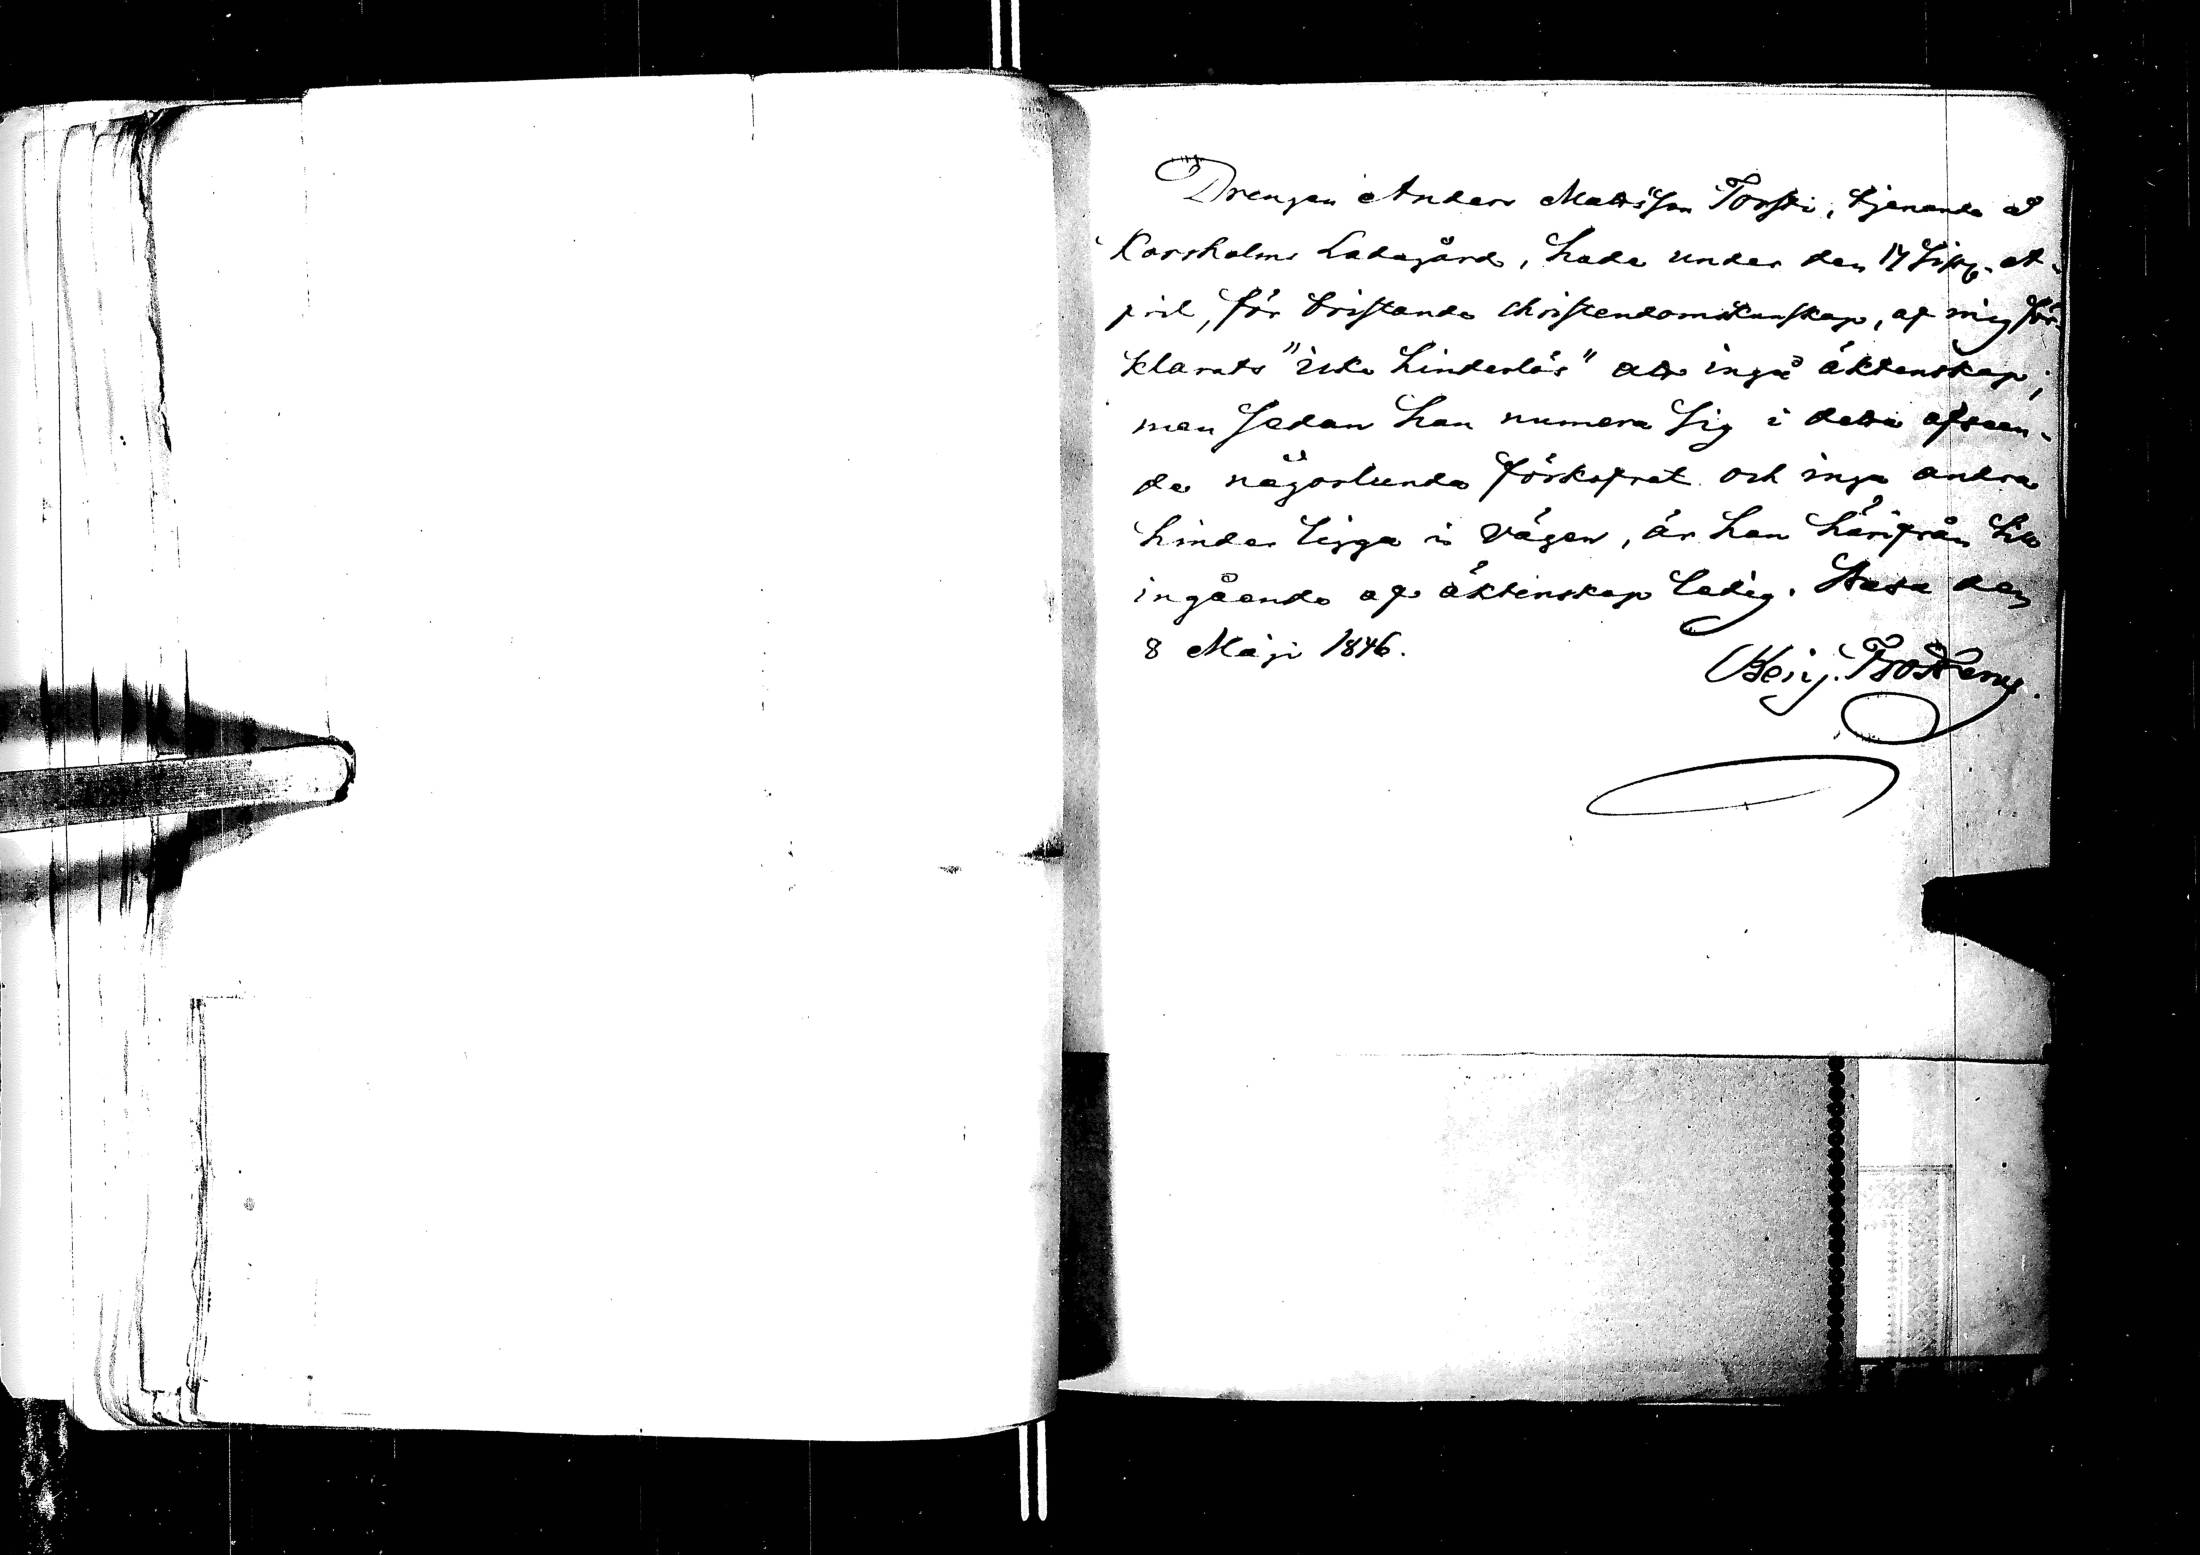 Drengen Anders Mattsson Torsti, tjenande å
Korsholms Ladugård, hade under den 17 sistl. A-
pril, för bristande christendomskunskap, af mig för-
klarats "icke hinderlös" att ingå äktenskap;
men sedan han numera sig i detta afseen-
de någorlunda förkofrat och inga andra
hinder ligga i vägen, är han härifrån till
ingående af äktenskap ledig. Wasa den
8 Maji 1846.
Benj. Frosterus.